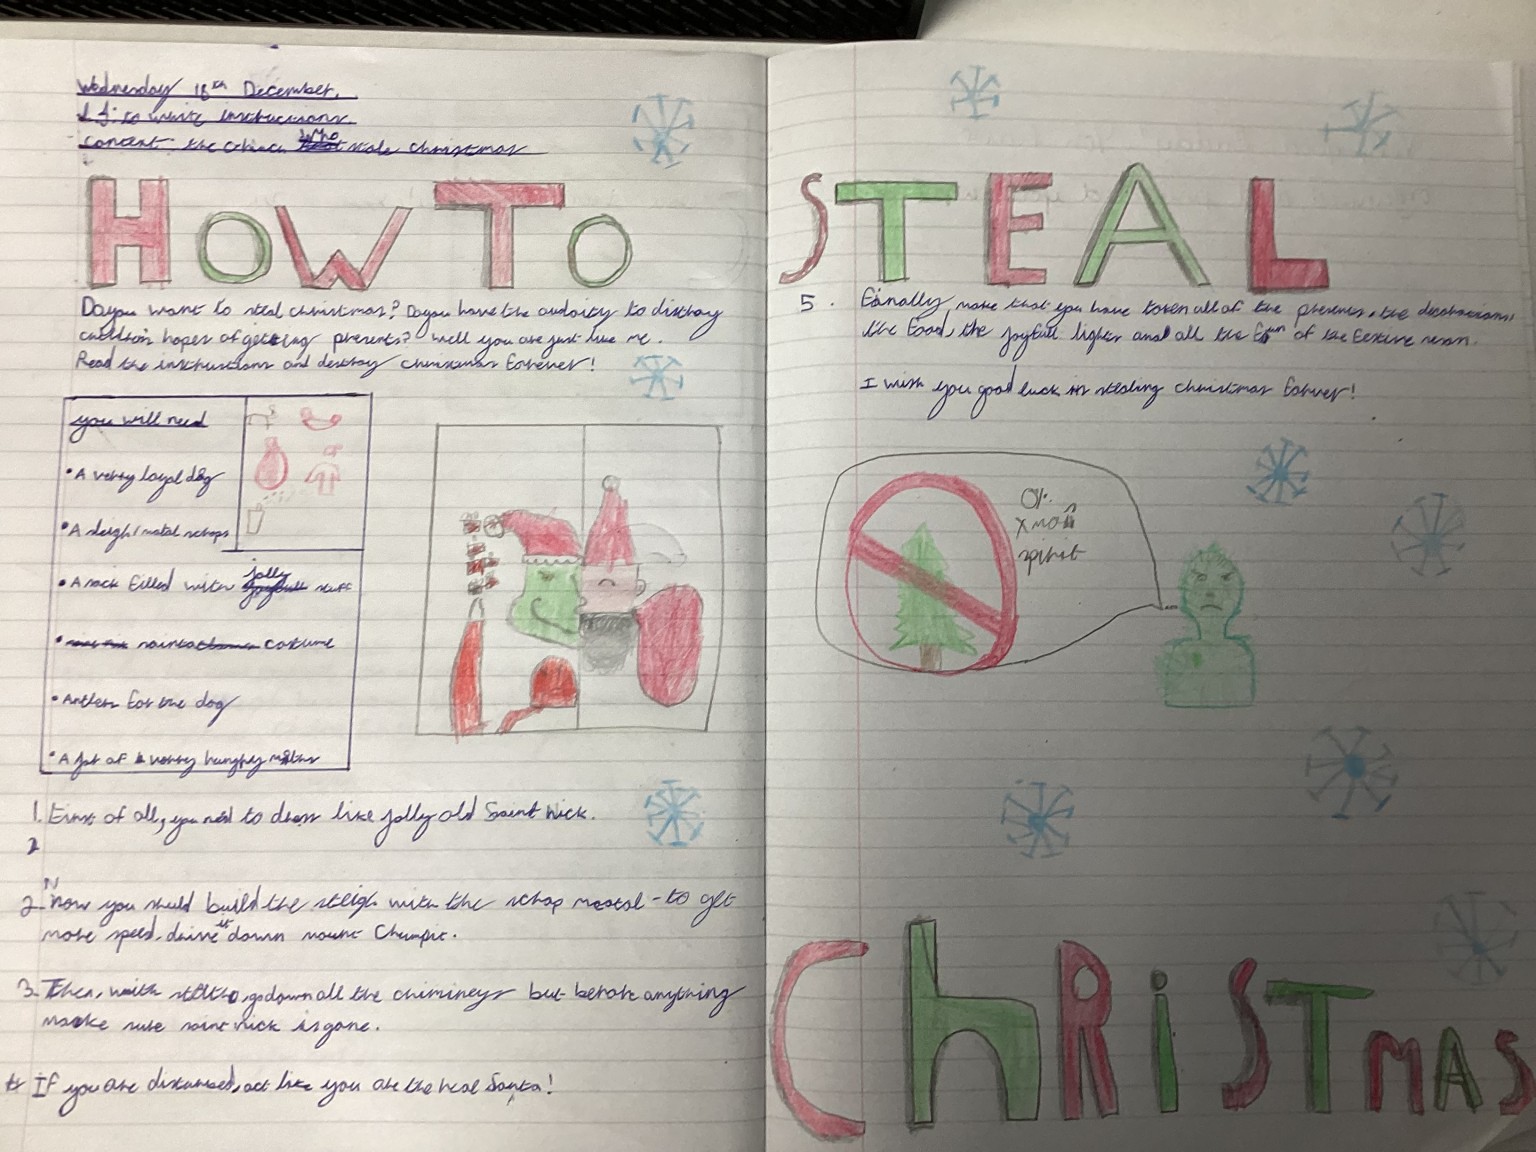 Wednesday 18th December.
L I: to write instructions.
context the Grinch who stole christmas
HOW TO STEAL
Do you want to steal christmas? Do you have the audaity to disthoy
children hopes of getting presents? Well you are just like me.
Read the instructions and desthoy christmas forever!
you will need
• A verry loyal dog
• A sleigh/metal schaps
• A sack filled with jolly stuff
• santa costume
• Antlers for the dog
• A jar of verry hunghy moths
1. First of all, you need to dress like jolly old Saint Nick.
2
2. Now you should build the sleigh with the schap meatal - to get
more speed, drive it down mount Chumpit.
3. Then, with stelth, go down all the chimineys but before anything
make sure saint nick is gone.
4. If you are disturbed, act like you are the real Santa!
5. Finally, make that you have taken all of the presents, the decorations,
the food, the joyfull lights and all the fun of the festive
I wish you good luck in stealing christmas forever!
0%
xmas
spirit
CHRiSTmAS